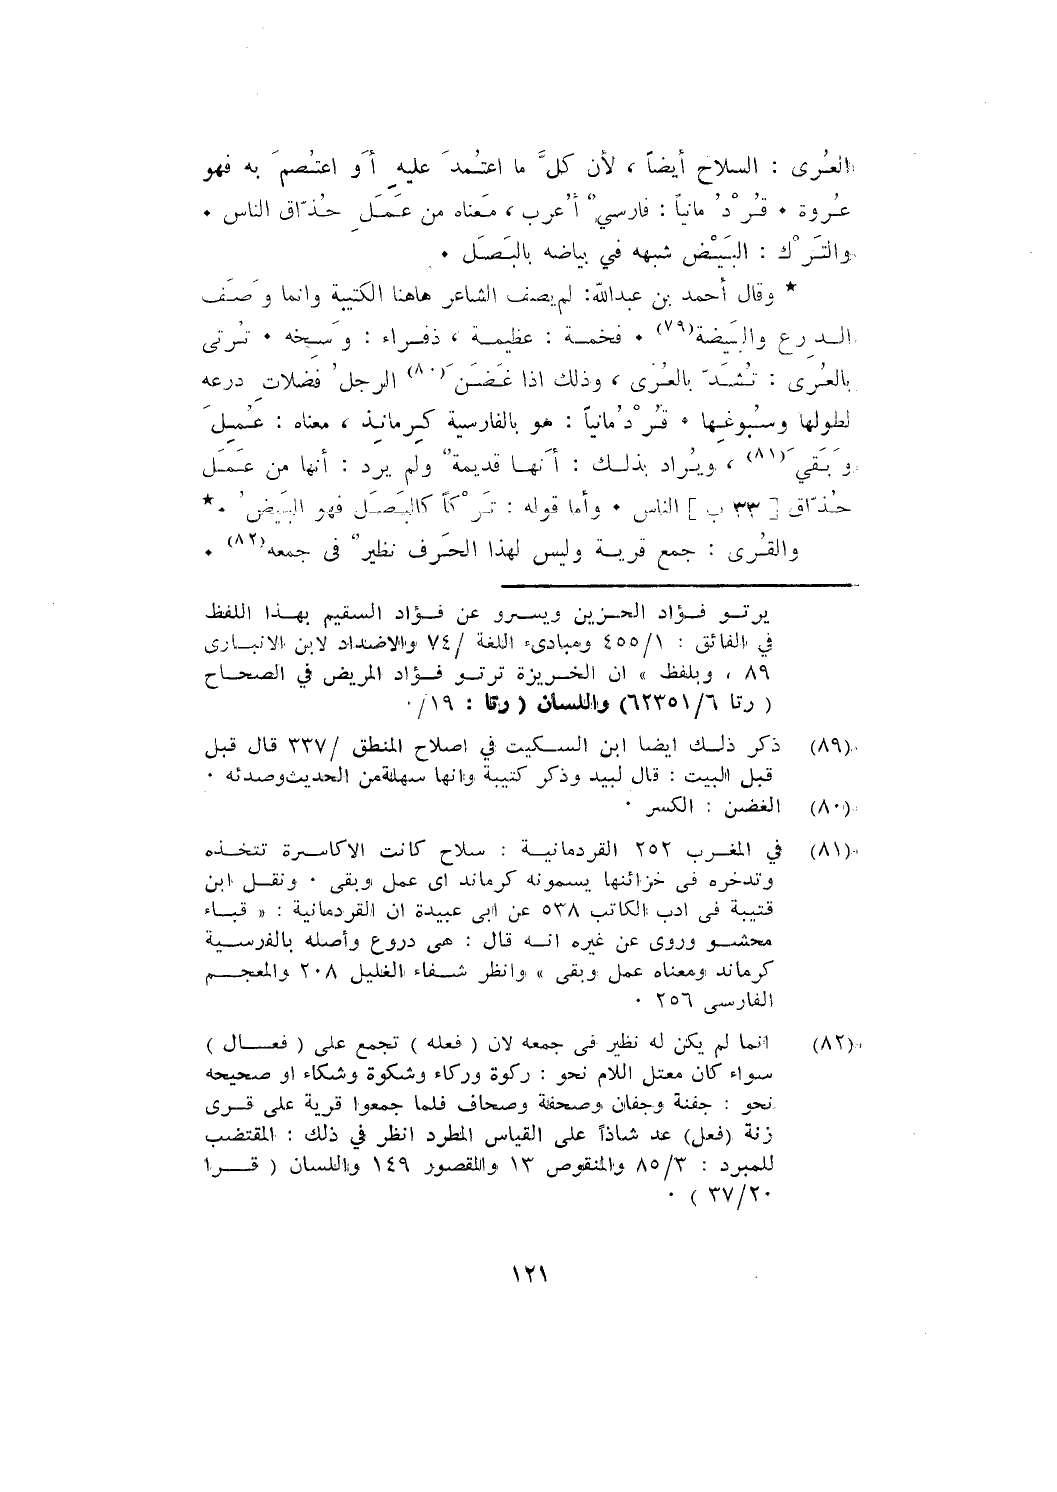 العُرى : السلاح أيضاً ، لأن كلَّ ما اعتُمدَ عليهِ أَو اعتُصمَ به فهو
عروة . قُرْدُمانياً : فارسيٌ أُعرب ، مَعناه من عَمَلِ حُذّاق الناس .
والتَرْك : البَيْض شبهه في بياضه بالبَصَل .
* وقال أحمد بن عبدالله: لم يصف الشاعر هاهنا الكتيبة وانما وَصَف
الدرع والبَيضة(٧٩) . فخمة : عظيمة ، ذفراء : وَسِخه . تُرتى
بالعُرى : تُشَدّ بالعُرَى ، وذلك اذا غَضَنَ(٨٠) الرجلُ فضلاتِ درعه
لطولها وسُبوغِها . قُرْدُمانياً : هو بالفارسية كِرمانِذ ، معناه : عُمِلَ
وَبَقيَ(٨١) ، ويُراد بذلك : أنها قديمةٌ ولم يرد : أنها من عَمَل
حُذّاق [ ٣٣ ب ] الناس . وأما قوله : تَرْكاً كالبَصَل فهو البَيضُ .*
والقُرى : جمع قرية وليس لهذا الحَرف نظيرٌ فى جمعه(٨٢) .
يرتو فؤاد الحزين ويسرو عن فؤاد السقيم بهذا اللفظ
في الفائق : ٤٥٥/١ ومبادىء اللغة /٧٤ والاضداد لابن الانبارى
٨٩ ، وبلفظ » ان الخريزة ترتو فؤاد المريض في الصحاح
( رتا ٦٢٣٥١/٦) واللسان ( رتا : ١٩/.
(٨٩) ذكر ذلك ايضا ابن السكيت في اصلاح المنطق /٣٣٧ قال قبل
قبل البيت : قال لبيد وذكر كتيبة وانها سهلةمن الحديثوصدئه .
(٨٠) الغضن : الكسر .
(٨١) في المغرب ٢٥٢ القردمانية : سلاح كانت الاكاسرة تتخذه
وتدخره فى خزائنها يسمونه كرماند اى عمل وبقى . ونقل ابن
قتيبة فى ادب الكاتب ٥٣٨ عن ابى عبيدة ان القردمانية : « قباء
محشو وروى عن غيره انه قال : هى دروع وأصله بالفرسية
كرماند ومعناه عمل وبقى » وانظر شفاء الغليل ٢٠٨ والمعجم
الفارسى ٢٥٦ .
(٨٢) انما لم يكن له نظير فى جمعه لان ( فعله ) تجمع على ( فعال )
سواء كان معتل اللام نحو : ركوة وركاء وشكوة وشكاء او صحيحه
نحو : جفنة وجفان وصحفة وصحاف فلما جمعوا قرية على قرى
زنة (فعل) عد شاذاً على القياس المطرد انظر في ذلك : المقتضب
للمبرد : ٨٥/٣ والمنقوص ١٣ والمقصور ١٤٩ واللسان ( قرا
٣٧/٢٠ ) .
١٢١